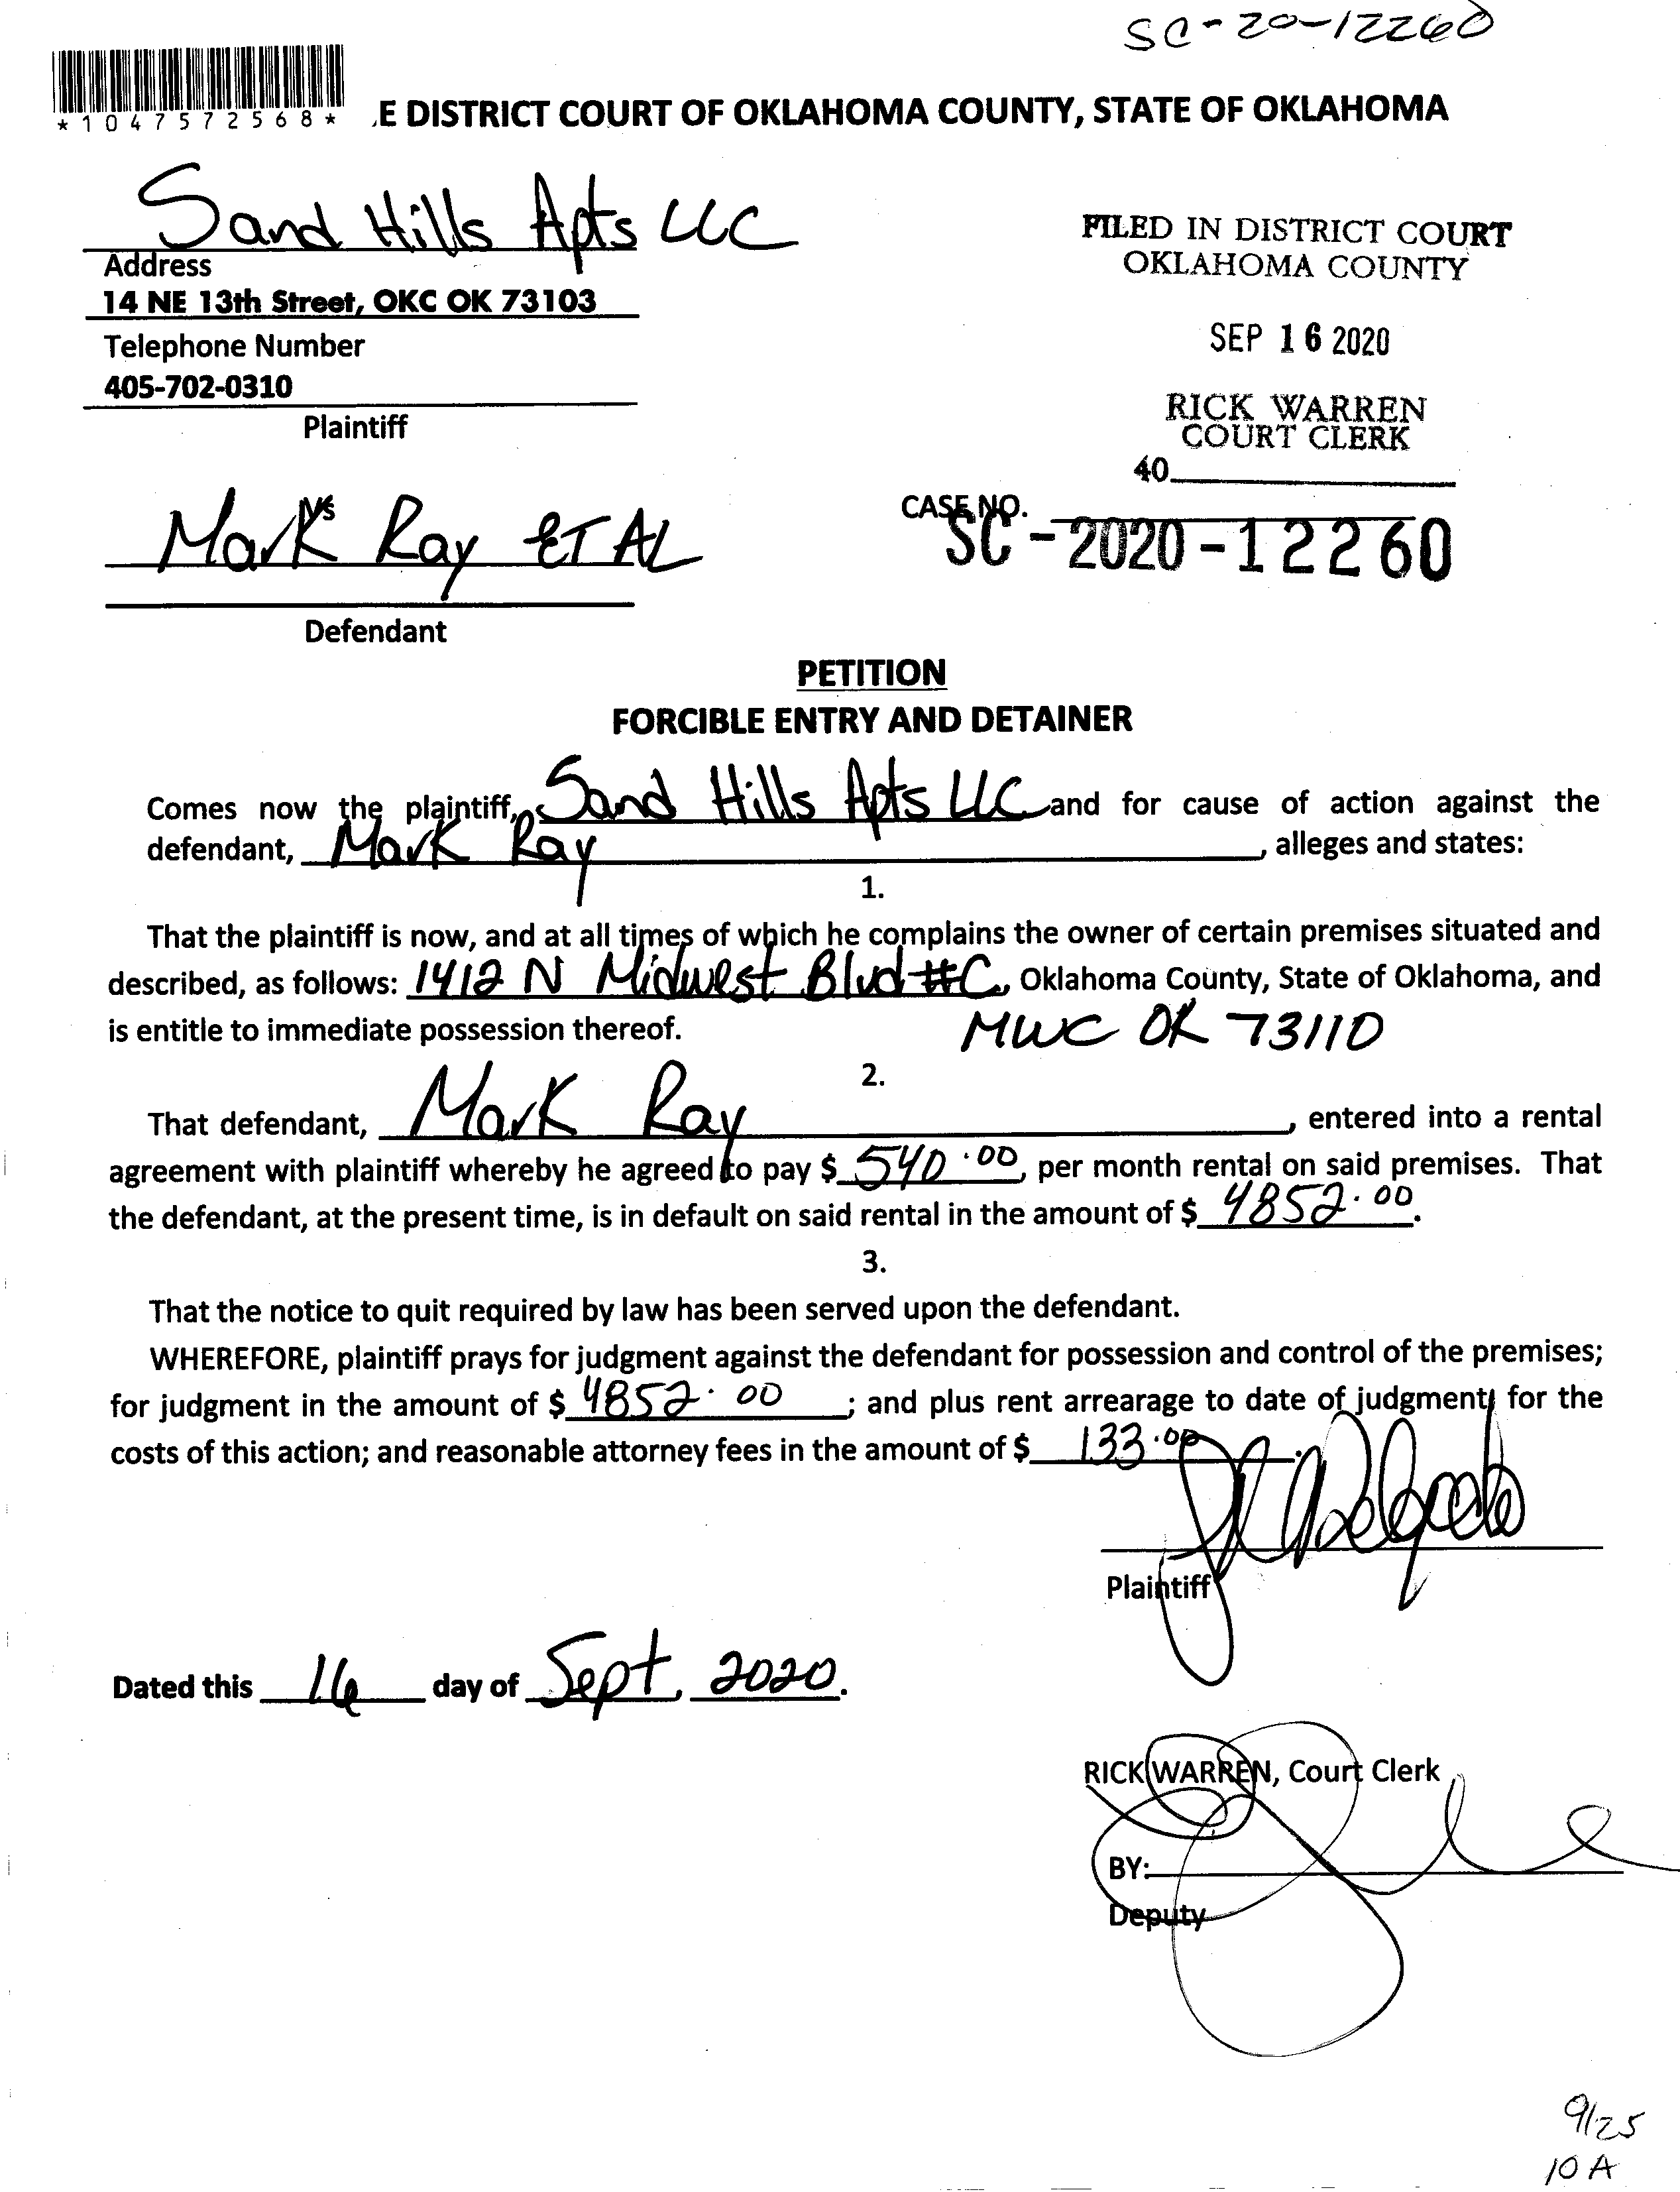 SC-20-12260
*1047572568*
E DISTRICT COURT OF OKLAHOMA COUNTY, STATE OF OKLAHOMA
Sand Hills Apts LLC
Address
14 NE 13th Street, OKC OK 73103
Telephone Number
405-702-0310
Plaintiff
FILED IN DISTRICT COURT
OKLAHOMA COUNTY
SEP 16 2020
RICK WARREN
COURT CLERK
40
vs
Mark Ray ET AL
Defendant
CASE NO.
SC-2020-12260
PETITION
FORCIBLE ENTRY AND DETAINER
Comes now the plaintiff, Sand Hills Apts LLC and for cause of action against the
defendant, Mark Ray, alleges and states:
1.
That the plaintiff is now, and at all times of which he complains the owner of certain premises situated and
described, as follows: 1412 N Midwest Blvd #C, Oklahoma County, State of Oklahoma, and
is entitle to immediate possession thereof. MWC OK 73110
2.
That defendant, Mark Ray, entered into a rental
agreement with plaintiff whereby he agreed to pay $ 540.00, per month rental on said premises. That
the defendant, at the present time, is in default on said rental in the amount of $ 4852.00.
3.
That the notice to quit required by law has been served upon the defendant.
WHEREFORE, plaintiff prays for judgment against the defendant for possession and control of the premises;
for judgment in the amount of $ 4852.00; and plus rent arrearage to date of judgment; for the
costs of this action; and reasonable attorney fees in the amount of $ 133.00.
Plaintiff
Dated this 16 day of Sept, 2020.
RICK WARREN, Court Clerk
BY:
Deputy
9/25
10 A